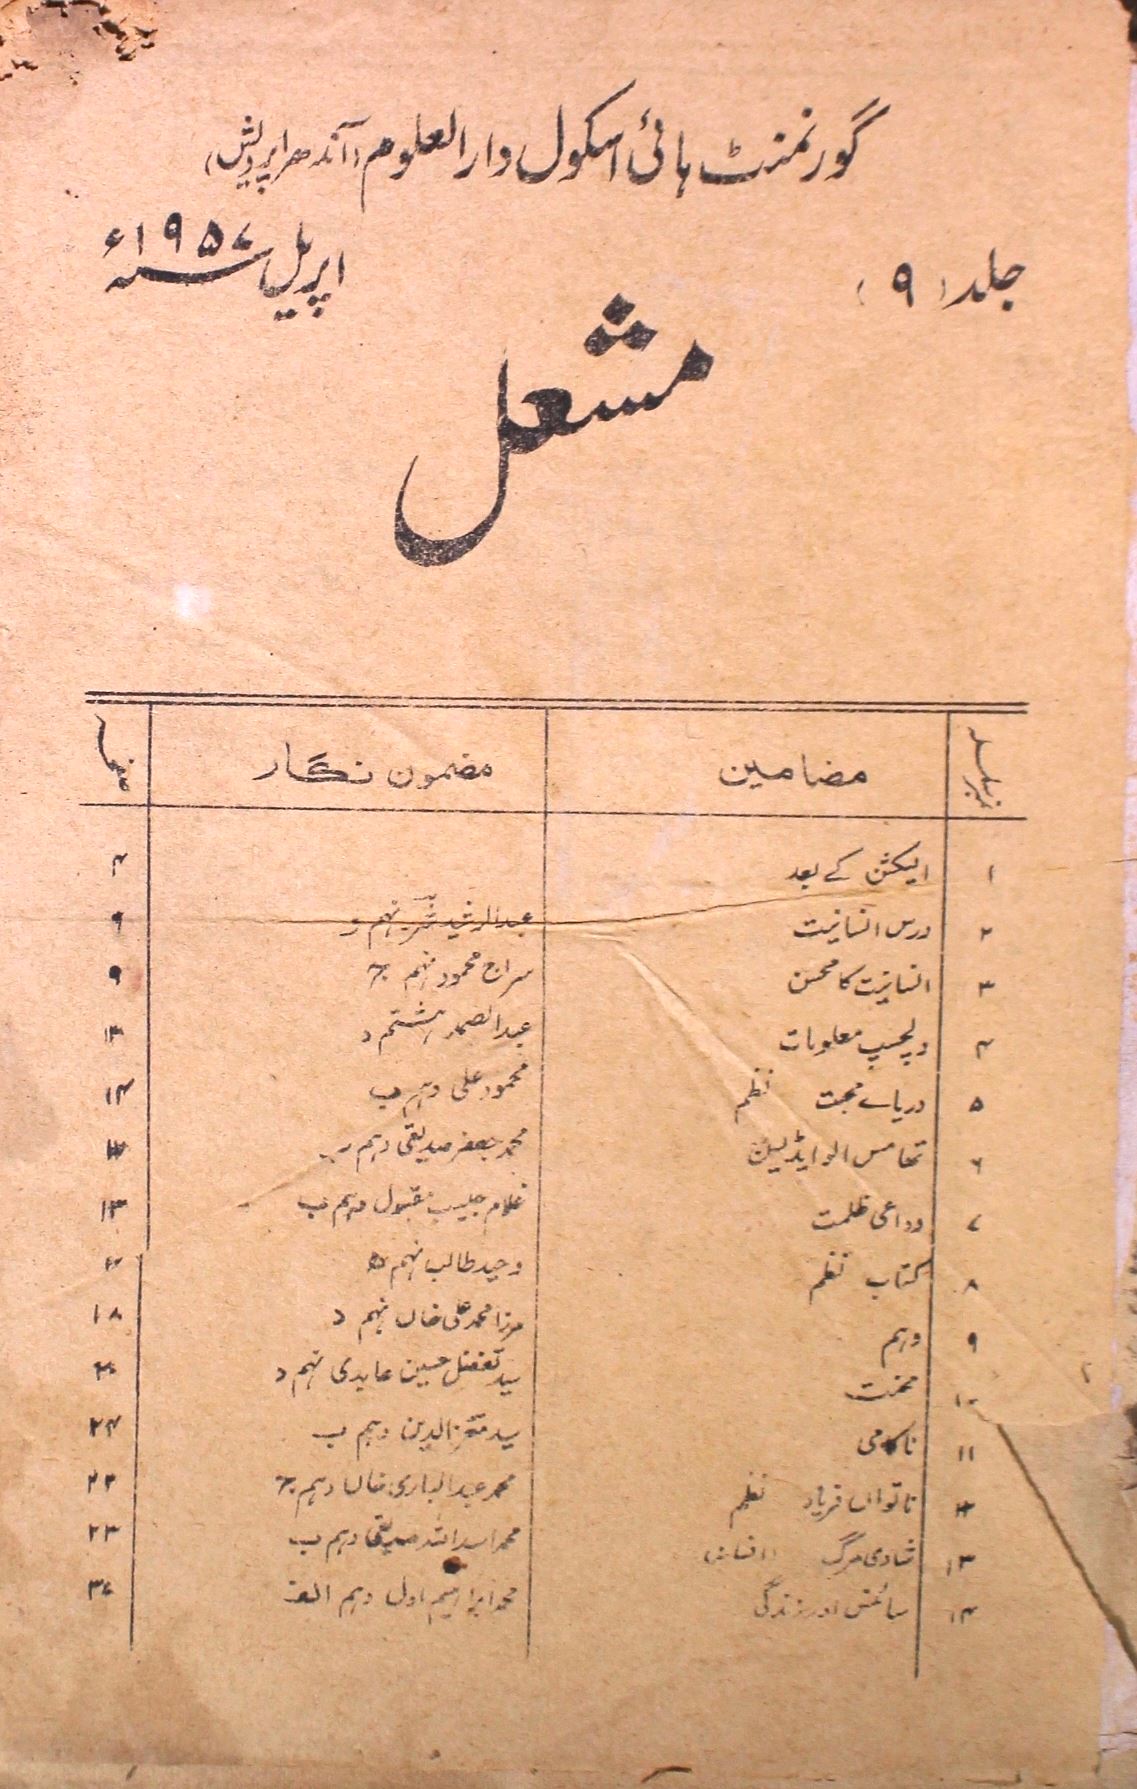 گورنمنٹ ہائی اسکول دارالعلوم (آندھراپردیش)
جلد (۹) اپریل سنہ ۱۹۵۷ء
مشعل
نمبر سلسلہ مضامین مضمون نگار صفحہ
۱ الیکشن کے بعد ۴
۲ درس انسانیت عبدالرشید نہم و ۶
۳ انسانیت کا محسن سراج محمود نہم ج ۹
۴ دلچسپ معلومات عبدالصمد ہشتم د
۵ دریائے محبت نظم محمود علی دہم ب ۱۴
۶ تھامس الوا ایڈیسن محمد جعفر صدیقی دہم ب
۷ وداعی ظلمت غلام حبیب مقبول دہم ب
۸ کتاب نظم وحید طالب نہم
۹ وہم مرزا محمد علی خاں نہم د ۱۸
۱۰ محنت سید تفضل حسین عابدی نہم د
۱۱ ناکامی سید معز الدین دہم ب ۲۴
۱۲ ناتواں فریاد نظم محمد عبدالباری خاں دہم ج
۱۳ شادی مرگ (افسانہ) محمد اسد اللہ صدیقی دہم ب ۲۳
۱۴ سائنس اور زندگی محمد ابراہیم اول دہم الف ۳۷